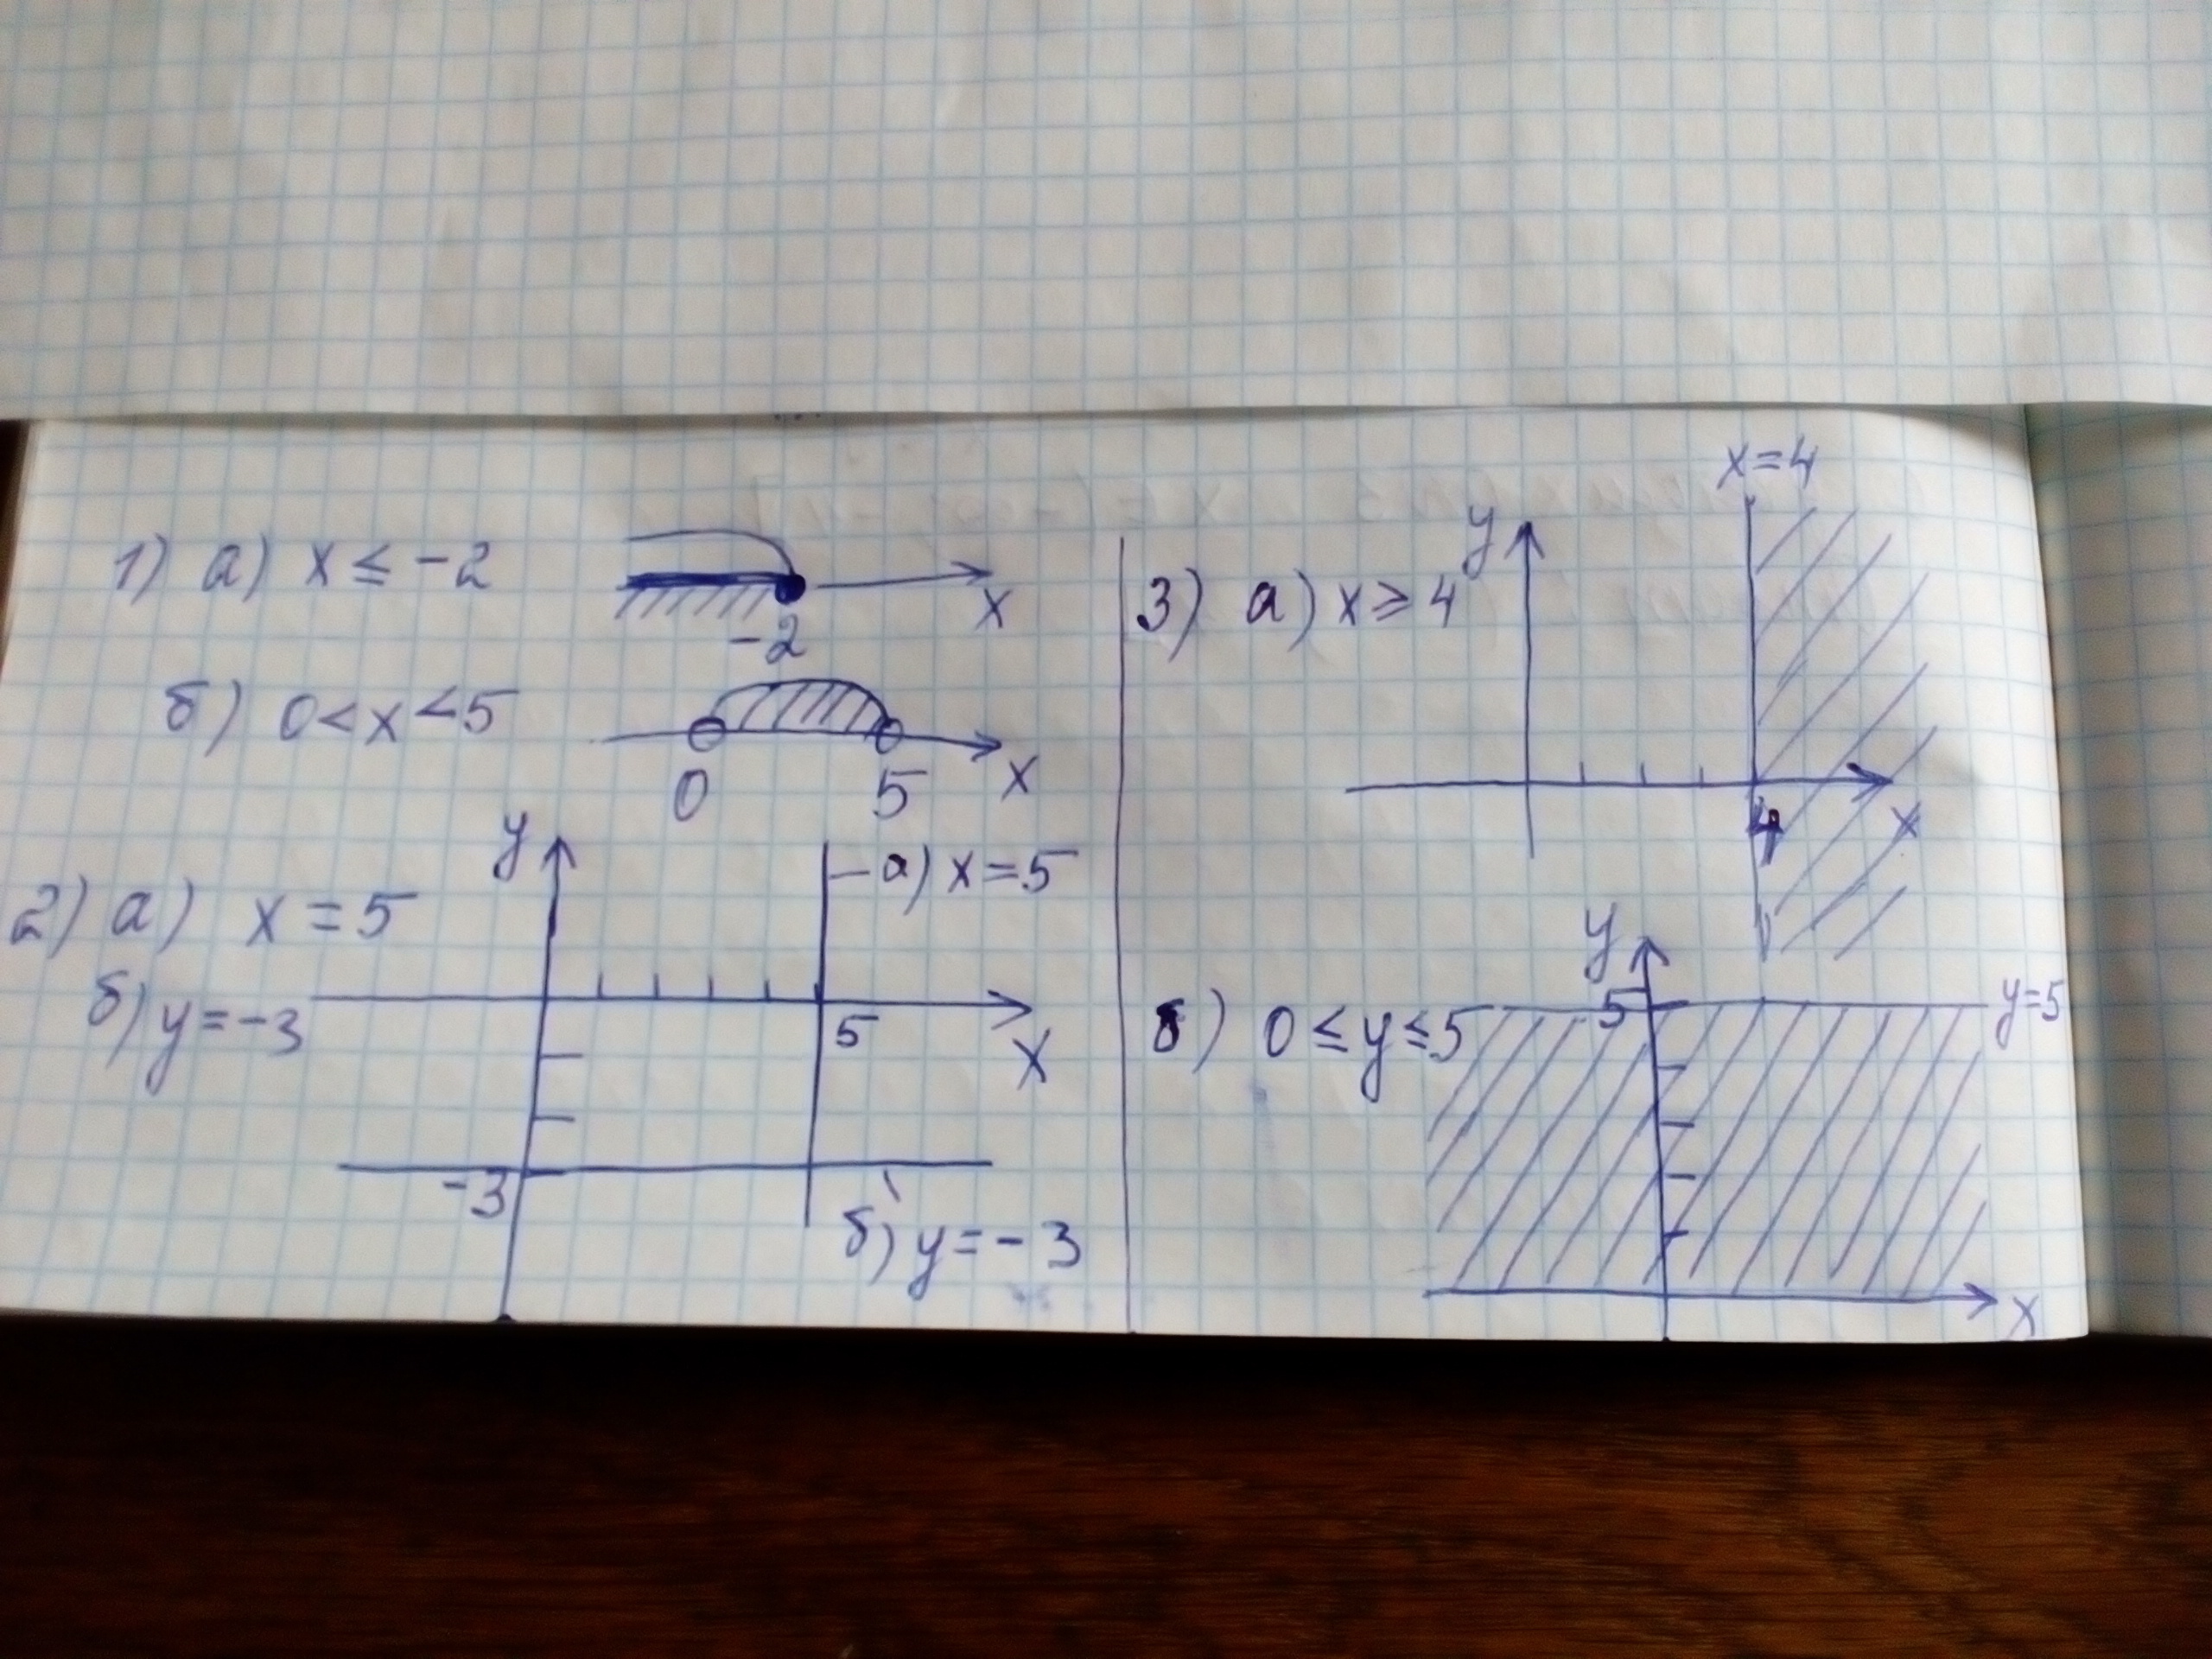 1) а) x ≤ -2
-2
x
б) 0 < x < 5
0
5
x
2) а) x = 5
б) y = -3
y
а) x = 5
5
x
-3
б) y = -3
3) а) x ≥ 4
y
x = 4
4
x
б) 0 ≤ y ≤ 5
y
5
y = 5
x